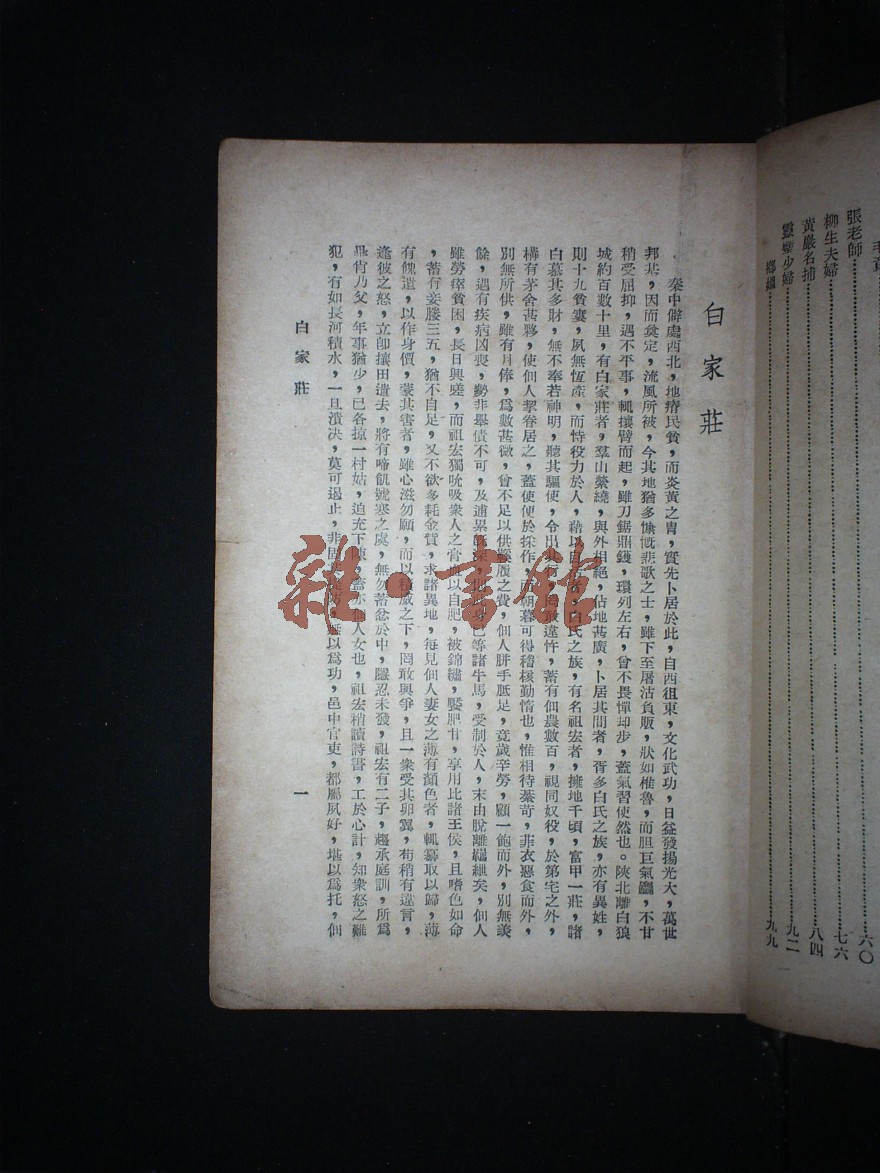 張老師……六〇
柳生夫婦……七六
黃巖名捕……八四
少婦……九二
……九九
白家莊
秦中僻處西北，地瘠民貧，而炎黃之胄，實先卜居於此，自西徂東，文化武功，日益發揚光大，萬世
邦基，因而奠定，流風所被，今其地猶多慷慨悲歌之士，雖下至屠沽負販，狀如椎魯，而胆巨氣麤，不甘
稍受屈抑，遇不平事，輒攘臂而起，雖刀鋸鼎鑊，環列左右，曾不畏憚却步，蓋氣習使然也。陝北離白狼
城約百數十里，有白家莊者，羣山縈繞，與外相絕，佔地甚廣，卜居其間者，胥多白氏之族，亦有異姓，
則十九貧窶，夙無恆產，而恃役力於人，藉以自活者，白氏之族，有名祖宏者，擁地千頃，富甲一莊，諸
白慕其多財，無不奉若神明，聽其驅使，令出其口，罔敢違忤，蓄有佃農數百，視同奴役，於第宅之外，
構有茅舍甚夥，使佃人挈眷居之，蓋使便於操作，而朝暮可得稽核勤惰也，惟相待綦苛，菲衣惡食而外，
別無所供，雖有月俸，爲數甚微，曾不足以供屨之費，佃人胼手胝足，竟歲辛勞，顧一飽而外，別無羨
餘，遇有疾病凶喪，勢非舉債不可，及逋累既深，此身已等諸牛馬，受制於人，末由脫離羈紲矣，佃人
雖勞瘁貧困，長日興嗟，而祖宏獨吮吸衆人之膏以自肥，被錦繡，饜肥甘，享用比諸王侯，且嗜色如命
，蓄有妾媵三五，猶不自足，又不欲多耗金貲，求諸異地，每見佃人妻女之薄有顏色者，輒篡取以歸，薄
有餽遺，以作身價，蒙其害者，雖心滋勿願，而以積威之下，罔敢與爭，且一衆受其卵翼，苟稍有違言，
逢彼之怒，立卽攘田遣去，將有啼飢號寒之虞，無勿蓄忿於中，隱忍未發，祖宏有二子，趨承庭訓，所爲
鼎肖乃父，年事猶少，已各掠一村姑，迫充下陳，蓋亦佃人女也，祖宏稍讀詩書，工於心計，知衆怒之難
犯，有如長河積水，一旦潰決，莫可遏止，非固其堤防，無以爲功，邑中官吏，都屬夙好，堪以爲托，佃
白家莊
一
雜·書館